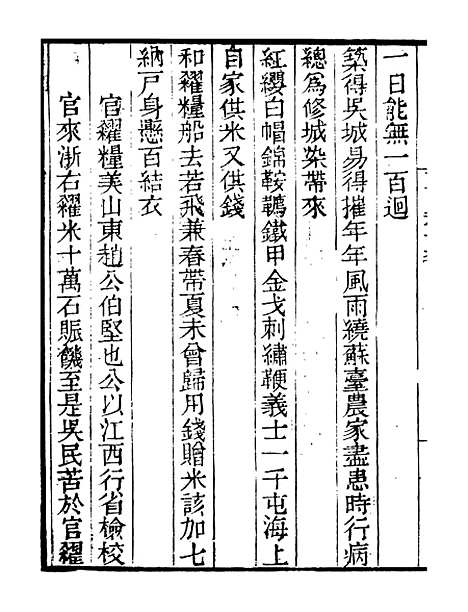 一日能無一百迴
築得吳城易得摧年年風雨繞蘇臺農家盡患時行病
總爲修城染帶來
紅纓白帽錦鞍韉鐵甲金戈刺繡鞭義士一千屯海上
自家供米又供錢
和糴糧船去若飛兼春帶夏未曾歸用錢贈米該加七
納戸身懸百結衣
官糴糧美山東趙公伯堅也公以江西行省檢校
官來浙右糴米十萬石賑饑至是吳民苦於官糴